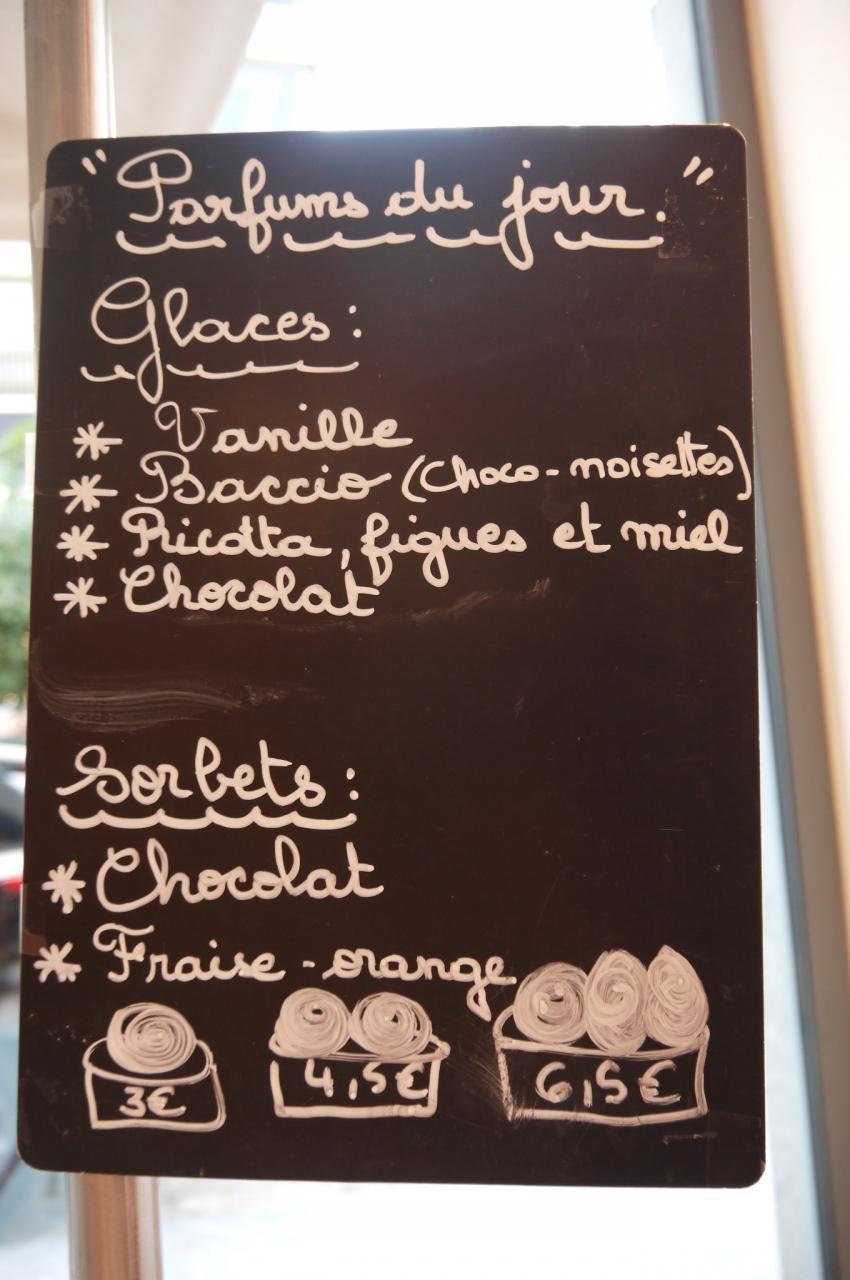 "Parfums du jour."
Glaces :
* Vanille
* Baccio (choco-noisettes)
* Ricotta, figues et miel
* Chocolat
Sorbets :
* Chocolat
* Fraise-orange
3€ 4,5€ 6,5€